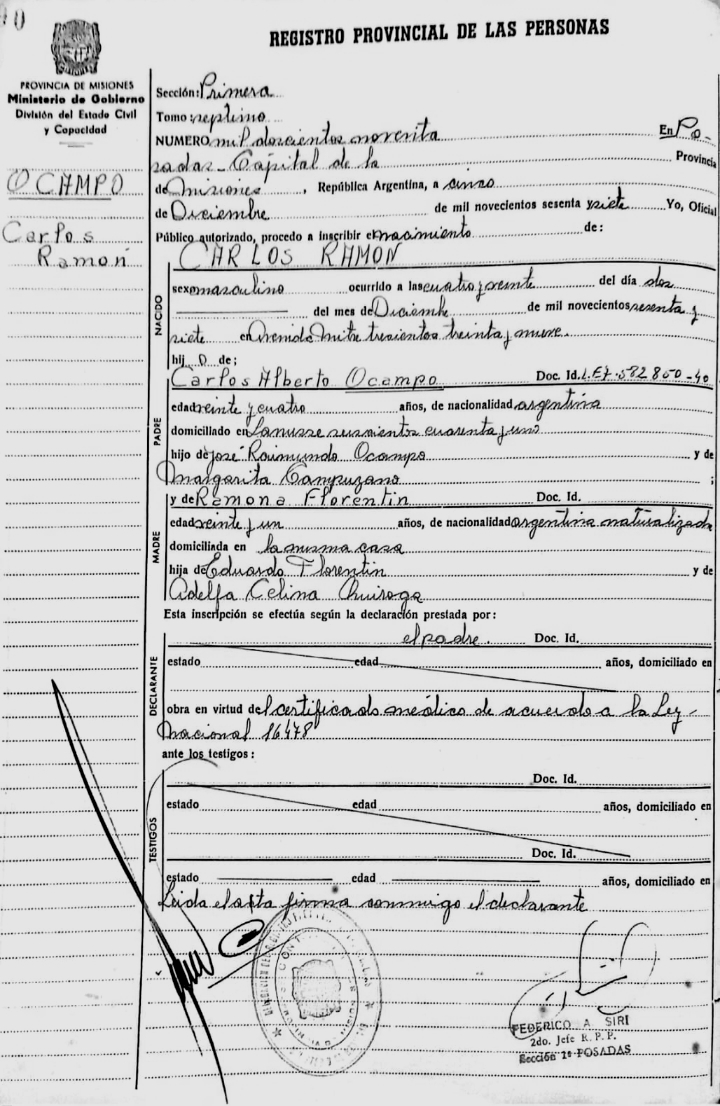 REGISTRO PROVINCIAL DE LAS PERSONAS
PROVINCIA DE MISIONES
Ministerio de Gobierno
División del Estado Civil
y Capacidad
OCAMPO
Carlos
Ramon
Sección: Primera
Tomo septimo
NUMERO mil doscientos noventa En Po-
sadas - Capital de la Provincia
de Misiones, República Argentina, a cinco
de Diciembre de mil novecientos sesenta y siete Yo, Oficial
Público autorizado, procedo a inscribir el nacimiento de:
CARLOS RAMON
NACIDO
sexo masculino ocurrido a las cuatro y veinte del día dos
del mes de Diciembre de mil novecientos sesenta y
siete en Avenida Mitre trescientos treinta y nueve.
hijo de:
PADRE
Carlos Alberto Ocampo Doc. Id.
edad veinte y cuatro años, de nacionalidad argentina
domiciliado en Lanusse seiscientos cuarenta y uno
hijo de José Raimundo Ocampo y de
Margarita Campuzano ;
MADRE
y de Ramona Florentin Doc. Id.
edad veinte y un años, de nacionalidad argentina naturalizada
domiciliada en la misma casa
hija de Eduardo Florentin y de
Adelfa Celina Quiroga
Esta inscripción se efectúa según la declaración prestada por:
DECLARANTE
el padre. Doc. Id.
estado edad años, domiciliado en
obra en virtud del certificado médico de acuerdo a la Ley
Nacional 16478
ante los testigos:
TESTIGOS
Doc. Id.
estado edad años, domiciliado en
Doc. Id.
estado edad años, domiciliado en
Leida el acta firma conmigo el declarante
FEDERICO A SIRI
2do. Jefe R. P. P.
Sección 1ª POSADAS